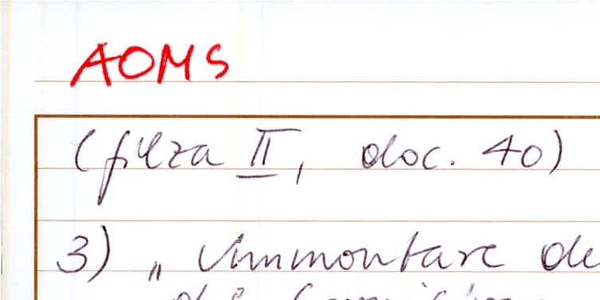 AOMS
(filza II, doc. 40)
3) „ Ammontare de